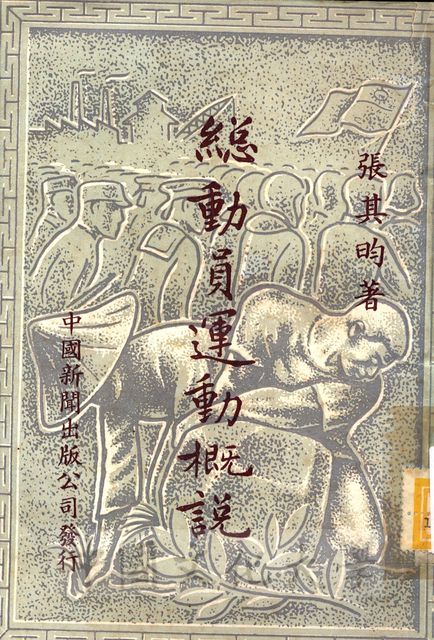 張其昀著
總動員運動概説
中國新聞出版公司發行